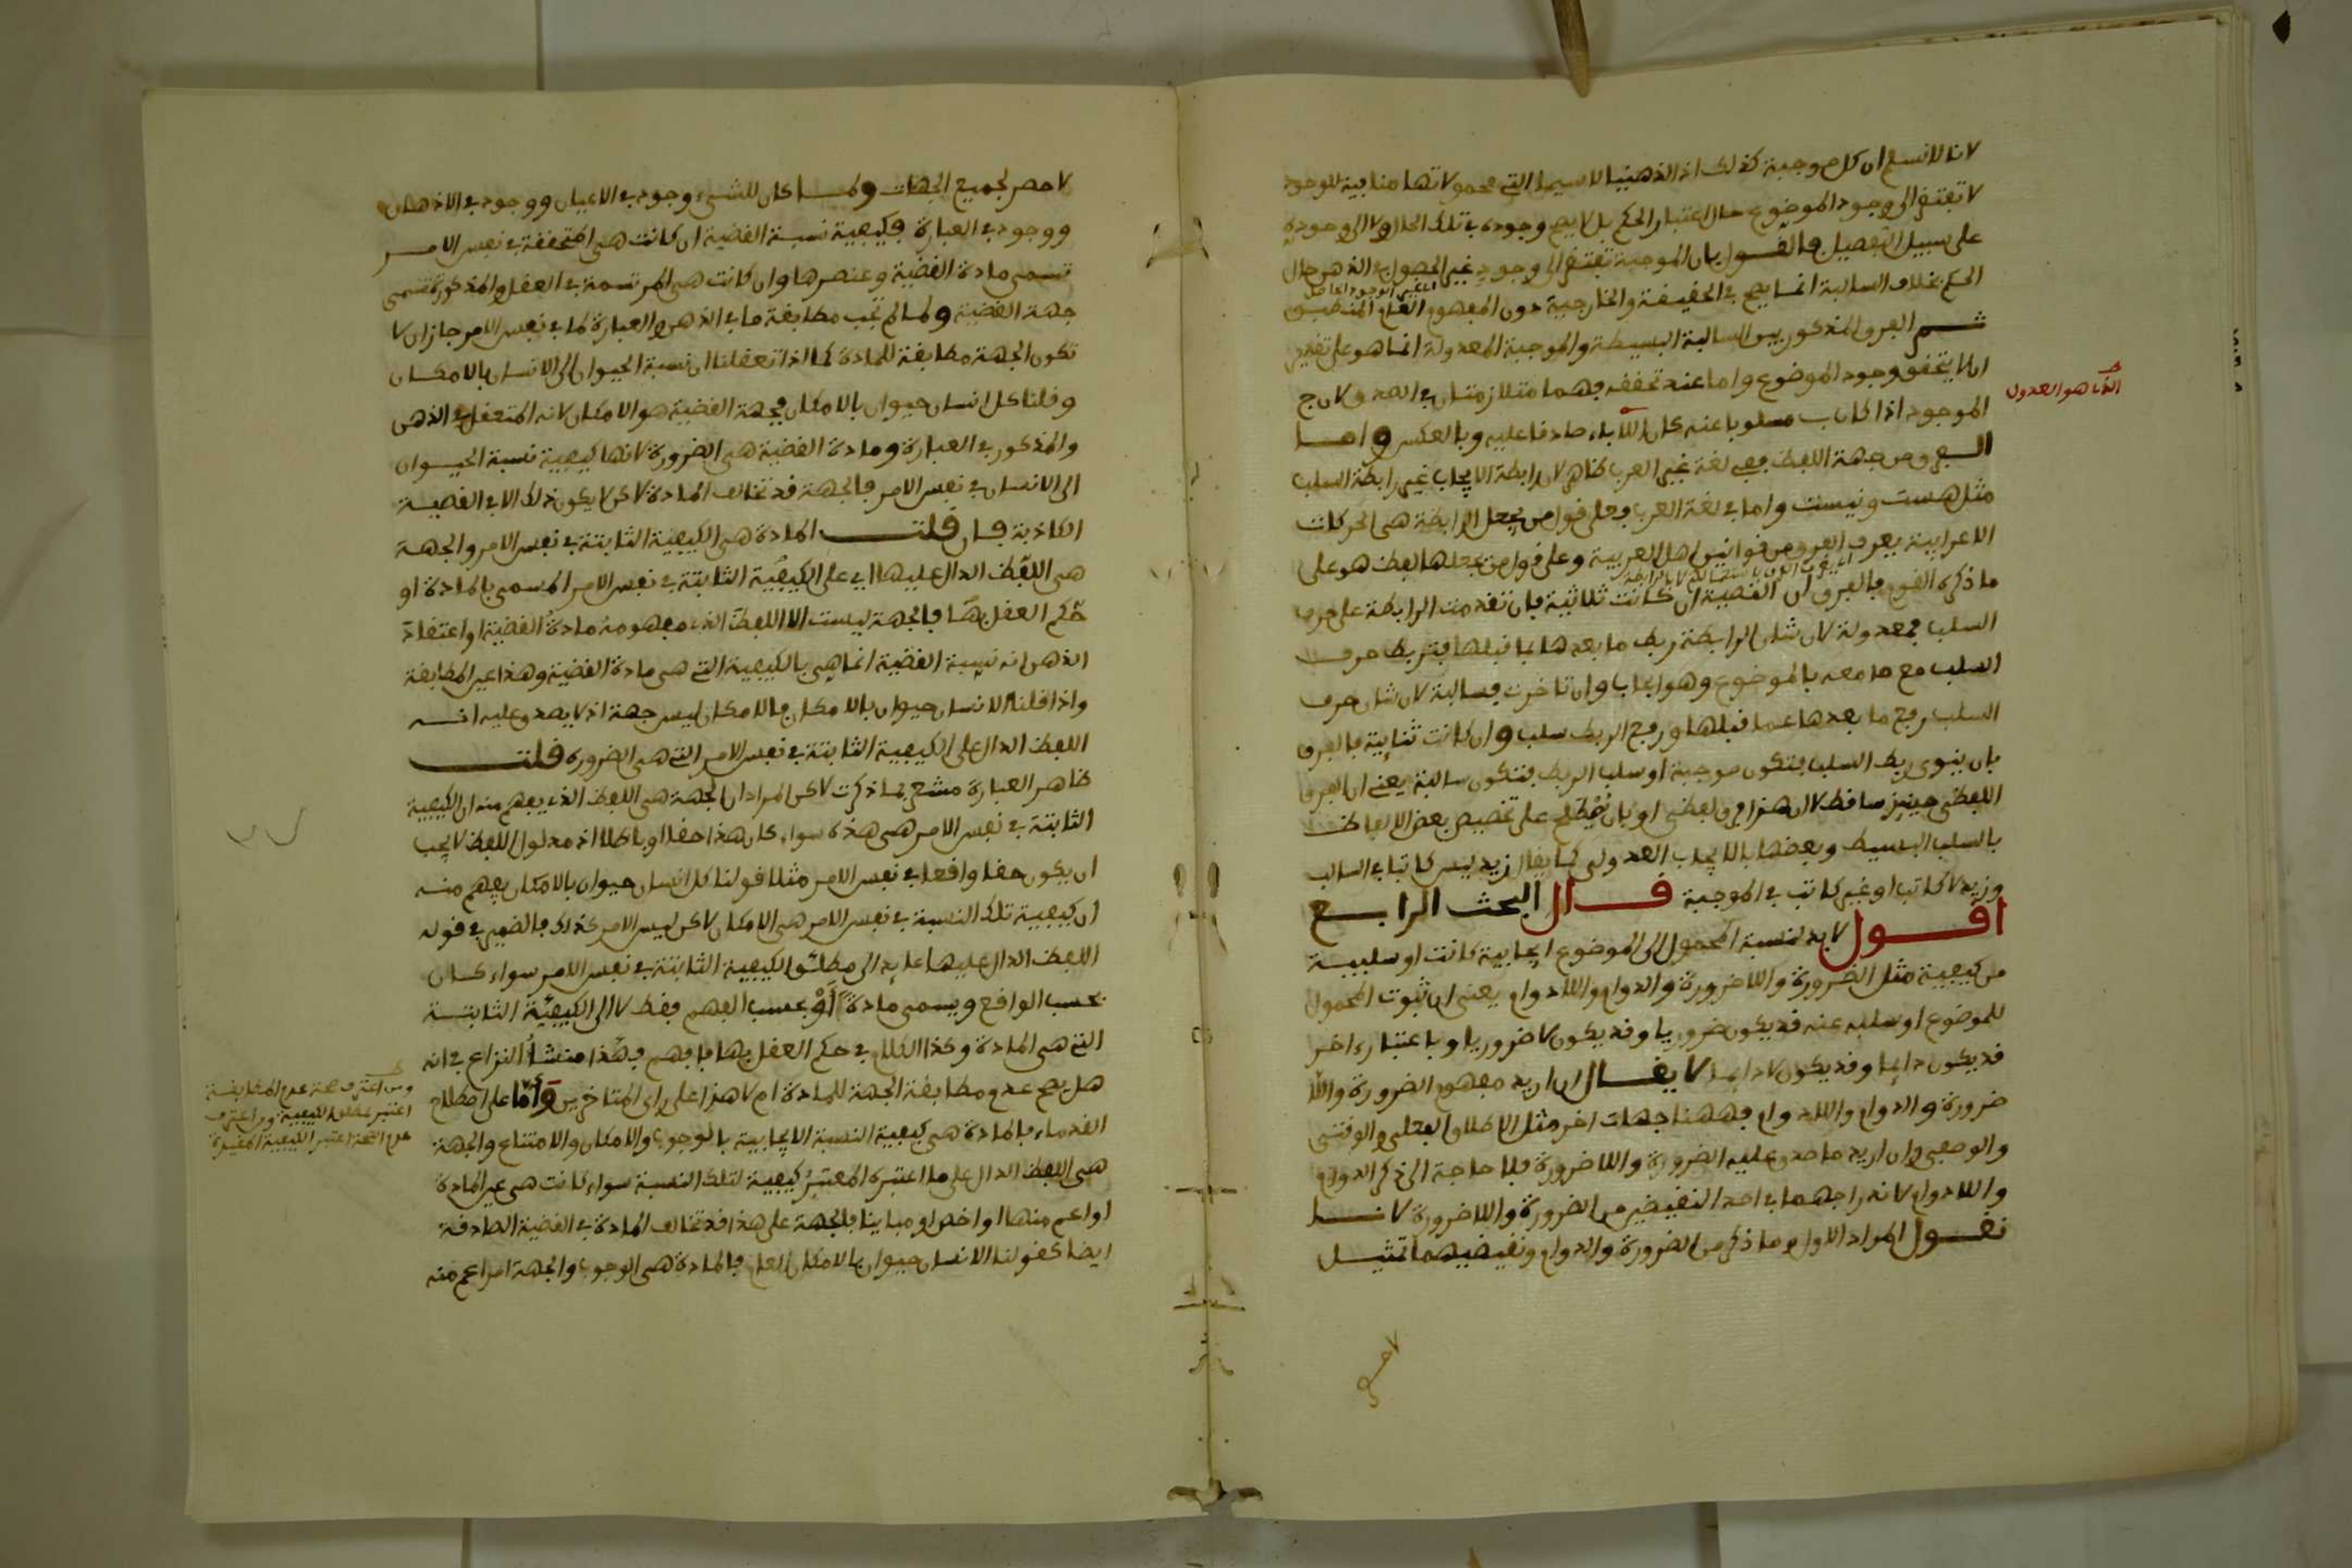 لانا لا نسلم ان كل موجبة كذلك اذ الذهنية لا سيما التي محمولاتها منافية للوجود
لا تفتقر الى وجود الموضوع حال اعتبار الحكم بل لا يصح وجوده في تلك الحال ولا الى وجوده
على سبيل التفصيل فالقول بان الموجبة تفتقر الى وجود غير الحصول في الذهن حال
الحكم بخلاف السالبة انما يصح في الحقيقة والخارجية دون المفهوم العام المنطبق
ثم الفرق المذكور بين السالبة البسيطة والموجبة المعدولة انما هو على تقدير
ان لا يتحقق وجود الموضوع واما عند تحققه فهما متلازمتان في الصدق لان ج
الذي هو العدول
الموجود اذا كان ب مسلوبا عنه كان اللاباء صادقا عليه وبالعكس واما
الفرق من جهة اللفظ ففي لغة غير العرب ظاهر لان رابطة الايجاب غير رابطة السلب
مثل هست ونيست واما في لغة العرب فعلى قول من يجعل الرابطة هي الحركات
الاعرابية يعرف الفرق من قوانين اهل العربية وعلى قول من يجعلها لفظ هو على
ما ذكره القوم فالفرق ان القضية ان كانت ثلاثية فان تقدمت الرابطة على حرف
السلب فمعدولة لان شان الرابطة ربط ما بعدها بما قبلها فتربط حرف
السلب مع ما معه بالموضوع وهو ايجاب وان تاخرت فسالبة لان شان حرف
السلب رفع ما بعدها عما قبلها ورفع الربط سلب وان كانت ثنائية فالفرق
بان ينوى ربط السلب فتكون موجبة او سلب الربط فتكون سالبة يعني ان الفرق
اللفظي حينئذ ساقط لان هذا فرق لفظي او بان يصطلح على تخصيص بعض الالفاظ
بالسلب البسيط وبعضها بالايجاب العدولي كما يقال زيد ليس كاتبا في السالب
وزيد لا كاتب او غير كاتب في الموجبة قال البحث الرابع
اقول لا بد لنسبة المحمول الى الموضوع ايجابية كانت او سلبية
من كيفية مثل الضرورة واللاضرورة والدوام واللادوام يعني ان ثبوت المحمول
للموضوع او سلبه عنه قد يكون ضروريا وقد يكون لا ضروريا وباعتبار اخر
قد يكون دايما وقد يكون لا دايما لا يقال ان اريد مفهوم الضرورة واللا
ضرورة والدوام واللادوام فههنا جهات اخر مثل الاطلاق الفعلي والوقتي
والوصفي وان اريد ما صدق عليه الضرورة واللاضرورة فلا حاجة الى ذكر الدوام
واللادوام لاندراجهما في احد النقيضين من الضرورة واللاضرورة لانا
نقول المراد الاول وما ذكر من الضرورة والدوام ونقيضيهما تمثيل
لا حصر
لا حصر لجميع الجهات ولما كان للشيء وجود في الاعيان ووجود في الاذهان
ووجود في العبارة فكيفية نسبة القضية ان كانت هي المتحققة في نفس الامر
تسمى مادة القضية وعنصرها وان كانت هي المرتسمة في العقل والمذكورة تسمى
جهة القضية ولما لم تجب مطابقة ما في الذهن والعبارة لما في نفس الامر جاز ان لا
تكون الجهة مطابقة للمادة كما اذا تعقلنا ان نسبة الحيوان الى الانسان بالامكان
وقلنا كل انسان حيوان بالامكان فجهة القضية هو الامكان لانه المتعقل في الذهن
والمذكور في العبارة ومادة القضية هي الضرورة لانها كيفية نسبة الحيوان
الى الانسان في نفس الامر فالجهة قد تخالف المادة لاكن لا يكون ذلك الا في القضية
الكاذبة فان قلت المادة هي الكيفية الثابتة في نفس الامر والجهة
هي اللفظ الدال عليها اي على الكيفية الثابتة في نفس الامر المسمى بالمادة او
حكم العقل بها فالجهة ليست الا اللفظ الذي مفهومه مادة القضية او اعتقاد
الذهن انه نسبة القضية انما هي بالكيفية التي هي مادة القضية وهذا عين المطابقة
واذا قلنا الانسان حيوان بالامكان فالامكان ليس جهة اذ لا يصدق عليه انه
اللفظ الدال على الكيفية الثابتة في نفس الامر التي هي الضرورة قلت
ظاهر العبارة مشعر بما ذكرت لاكن المراد ان الجهة هي اللفظ الذي يفهم منه ان الكيفية
الثابتة في نفس الامر هي هذه سواء كان هذا حقا او باطلا اذ مدلول اللفظ لا يجب
ان يكون حقا واقعا في نفس الامر مثلا قولنا كل انسان حيوان بالامكان يفهم منه
ان كيفية تلك النسبة في نفس الامر هي الامكان لاكن ليس الامر كذلك فالضمير في قوله
اللفظ الدال عليها عايد الى مطلق الكيفية الثابتة في نفس الامر سواء كان
بحسب الواقع ويسمى مادة او بحسب الفهم فقط لا الى الكيفية الثابتة
التي هي المادة وكذا الكلام في حكم العقل بها فافهم فهذا منشأ النزاع في انه
هل يصح عدم مطابقة الجهة للمادة ام لا هذا على راي المتاخرين واما على اصطلاح
ومن اعترف بصحة عدم المطابقة
اعتبر مطلق الكيفية ومن اعترف
عدم الصحة اعتبر الكيفية المقيدة
القدماء فالمادة هي كيفية النسبة الايجابية بالوجوب والامكان والامتناع والجهة
هي اللفظ الدال على ما اعتبره المعتبر كيفية لتلك النسبة سواء كانت هي عين المادة
او اعم منها او اخص او مباينا فالجهة على هذا قد تخالف المادة في القضية الصادقة
ايضا كقولنا الانسان حيوان بالامكان العام فالمادة هي الوجوب والجهة امر اعم منه